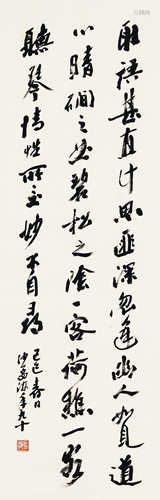 取語甚直计思匪深忽逢幽人如見道
心晴磵之曲碧松之陰一客荷樵一客
聽琴情性所至妙不自尋
己巳春日
沙孟海年九十